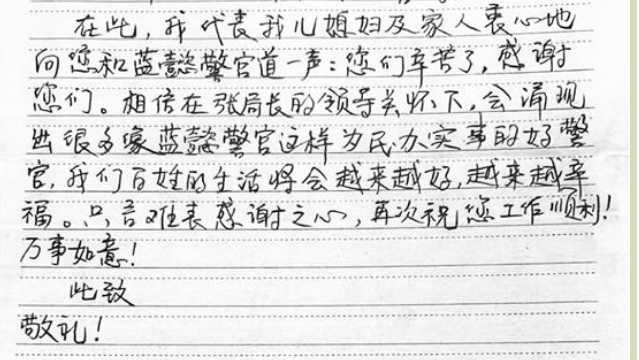 在此，我代表我儿媳妇及家人衷心地
向您和蓝懿警官道一声：您们辛苦了，感谢
您们。相信在张局长的领导关怀下，会涌现
出很多象蓝懿警官这样为民办实事的好警
官，我们百姓的生活将会越来越好，越来越幸
福。只言难表感谢之心，再次祝您工作顺利！
万事如意！
此致
敬礼！